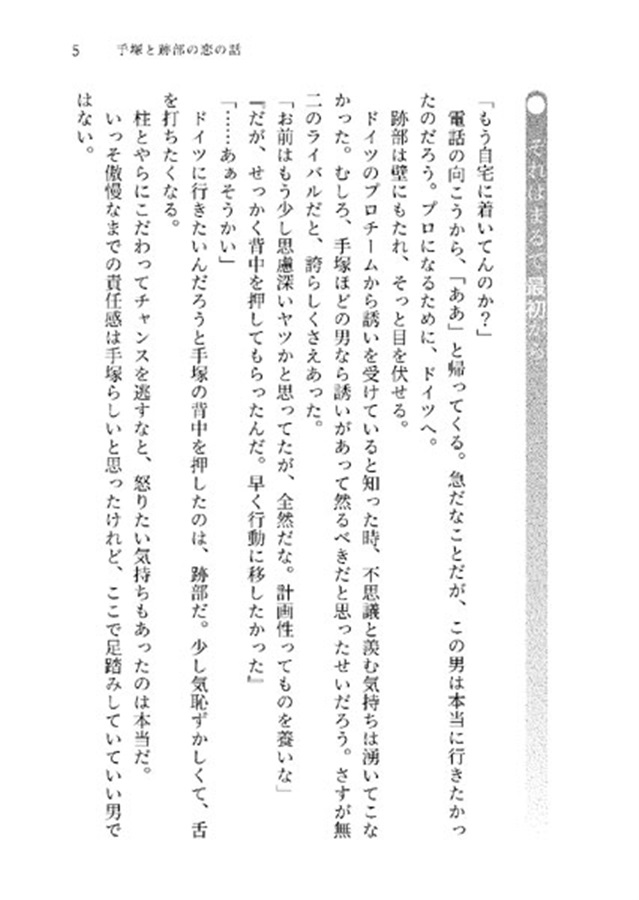 5
手塚と跡部の恋の話
それはまるで最初から
「もう自宅に着いてんのか？」
電話の向こうから、「ああ」と帰ってくる。急だなことだが、この男は本当に行きたかっ
たのだろう。プロになるために、ドイツへ。
跡部は壁にもたれ、そっと目を伏せる。
ドイツのプロチームから誘いを受けていると知った時、不思議と羨む気持ちは湧いてこな
かった。むしろ、手塚ほどの男なら誘いがあって然るべきだと思ったせいだろう。さすが無
二のライバルだと、誇らしくさえあった。
「お前はもう少し思慮深いヤツかと思ってたが、全然だな。計画性ってものを養いな」
『だが、せっかく背中を押してもらったんだ。早く行動に移したかった』
「……あぁそうかい」
ドイツに行きたいんだろうと手塚の背中を押したのは、跡部だ。少し気恥ずかしくて、舌
を打ちたくなる。
柱とやらにこだわってチャンスを逃すなと、怒りたい気持ちもあったのは本当だ。
いっそ傲慢なまでの責任感は手塚らしいと思ったけれど、ここで足踏みしていていい男で
はない。